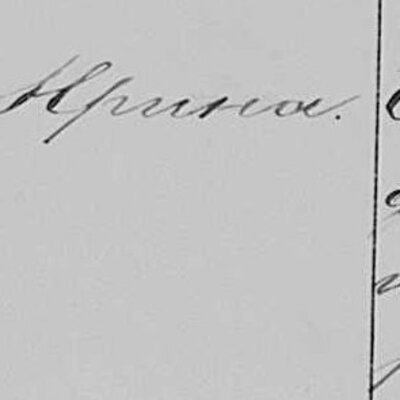 Ирина.